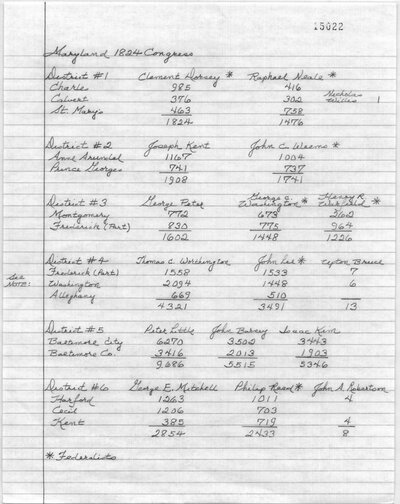 15022
Maryland 1824 Congress
District #1 Clement Dorsey * Raphael Neale *
Charles 985 416 Nicholas
Calvert 376 302 Willis 1
St. Mary's 463 758
1824 1476
District #2 Joseph Kent John C. Weems *
Anne Arundel 1167 1004
Prince Georges 741 737
1908 1741
District #3 George Peter George C. Washington * Henry R. Warfield *
Montgomery 772 673 262
Frederick (Part) 830 775 964
1602 1448 1226
District #4 Thomas C. Worthington John Lee * Upton Bruce
Frederick (Part) 1558 1533 7
See Note: Washington 2094 1448 6
Alleghany 669 510
4321 3491 13
District #5 Peter Little John Barney Isaac Kim
Baltimore City 6270 3502 3443
Baltimore Co. 3416 2013 1903
9686 5515 5346
District #6 George E. Mitchell Philip Reed * John A. Robertson
Harford 1263 1011 4
Cecil 1206 703
Kent 385 719 4
2854 2433 8
* Federalists